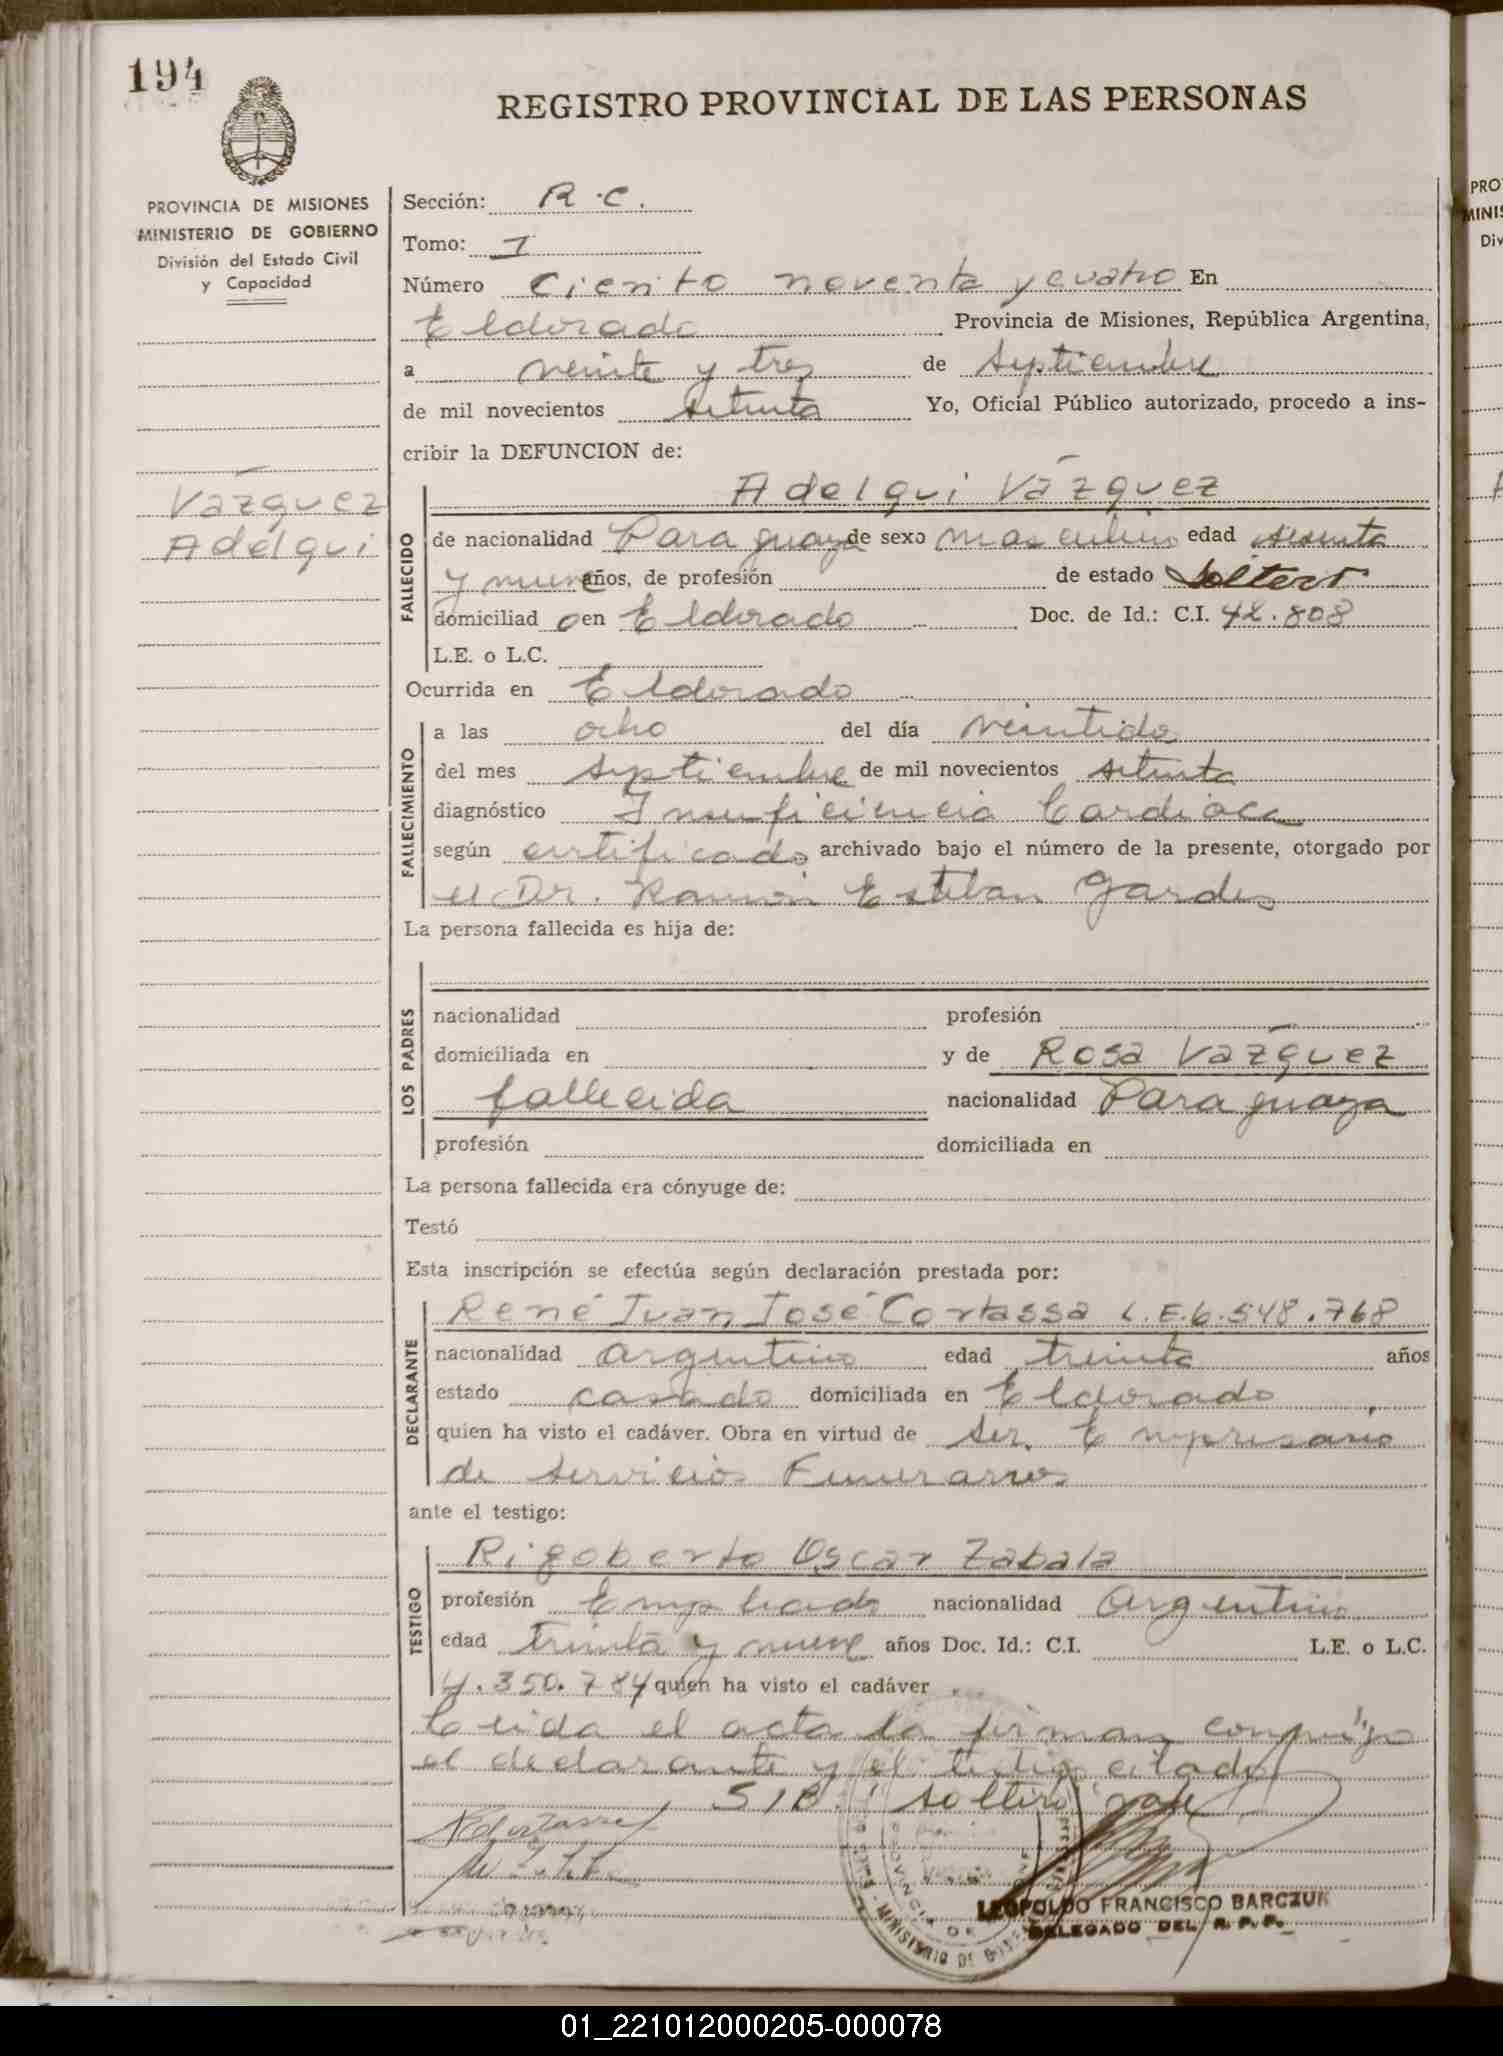 194
REGISTRO PROVINCIAL DE LAS PERSONAS
PROVINCIA DE MISIONES
MINISTERIO DE GOBIERNO
División del Estado Civil
y Capacidad
Vázquez
Adelqui
Sección: R.C.
Tomo: I
Número Ciento noventa y cuatro En
Eldorado Provincia de Misiones, República Argentina,
a veinte y tres de Septiembre
de mil novecientos setenta Yo, Oficial Público autorizado, procedo a ins-
cribir la DEFUNCION de:
Adelqui Vázquez
FALLECIDO
de nacionalidad Paraguaya de sexo masculino edad sesenta
y nueve años, de profesión de estado soltero
domiciliad o en Eldorado Doc. de Id.: C.I. 42.808
L.E. o L.C.
Ocurrida en Eldorado
FALLECIMIENTO
a las ocho del día veintidos
del mes septiembre de mil novecientos setenta
diagnóstico Insuficiencia Cardiaca
según certificado archivado bajo el número de la presente, otorgado por
el Dr. Ramón Esteban Gardes
La persona fallecida es hija de:
LOS PADRES
nacionalidad profesión
domiciliada en y de Rosa Vázquez
fallecida nacionalidad Paraguaya
profesión domiciliada en
La persona fallecida era cónyuge de:
Testó
Esta inscripción se efectúa según declaración prestada por:
DECLARANTE
René Juan José Cortassa L.E. 6.548.768
nacionalidad argentino edad treinta años
estado casado domiciliada en Eldorado
quien ha visto el cadáver. Obra en virtud de ser Empresario
de servicios Funerarios
ante el testigo:
TESTIGO
Rigoberto Oscar Zabala
profesión Empleado nacionalidad argentino
edad treinta y nueve años Doc. Id.: C.I. L.E. o L.C.
4.350.784 quien ha visto el cadáver
Leida el acta la firman conmigo
el declarante y el testigo citado
S/B: soltero vale
LEOPOLDO FRANCISCO BARCZUK
DELEGADO DEL R. P. P.
MINISTERIO DE
PROVINCIA DE
PRO
MINIS
Div
01_221012000205-000078